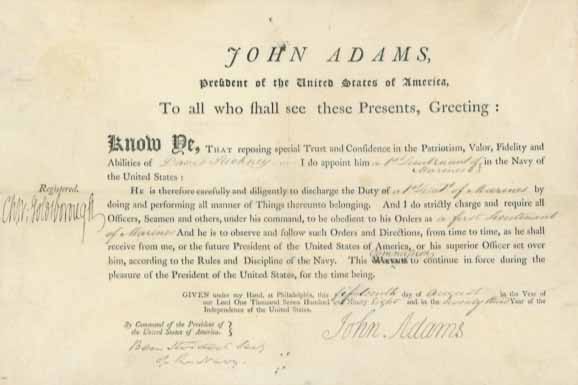 JOHN ADAMS,
Preſident of the United States of America,
To all who ſhall ſee theſe Preſents, Greeting:
Know Ye, THAT repoſing ſpecial Truſt and Confidence in the Patriotiſm, Valor, Fidelity and
Abilities of David Stickney I do appoint him a 1st Lieutenant of in the Navy of
Marines
the United States:
HE is therefore carefully and diligently to diſcharge the Duty of a 1st Lieut. of Marines by
doing and performing all manner of Things thereunto belonging. And I do ſtrictly charge and require all
Officers, Seamen and others, under his command, to be obedient to his Orders as a first Lieutenant
of Marines And he is to obſerve and follow ſuch Orders and Directions, from time to time, as he ſhall
receive from me, or the future Preſident of the United States of America, or his ſuperior Officer ſet over
him, according to the Rules and Diſcipline of the Navy. This Commission to continue in force during the
pleaſure of the Preſident of the United States, for the time being.
Regiſtered.
Chs. W. Goldsborough
GIVEN under my Hand, at Philadelphia, this fifteenth day of August in the Year of
our Lord One Thouſand Seven Hundred and Ninety Eight and in the twenty third Year of the
Independence of the United States.
By Command of the Preſident of
the United States of America.
John Adams
Ben Stoddert Secy
of the Navy.